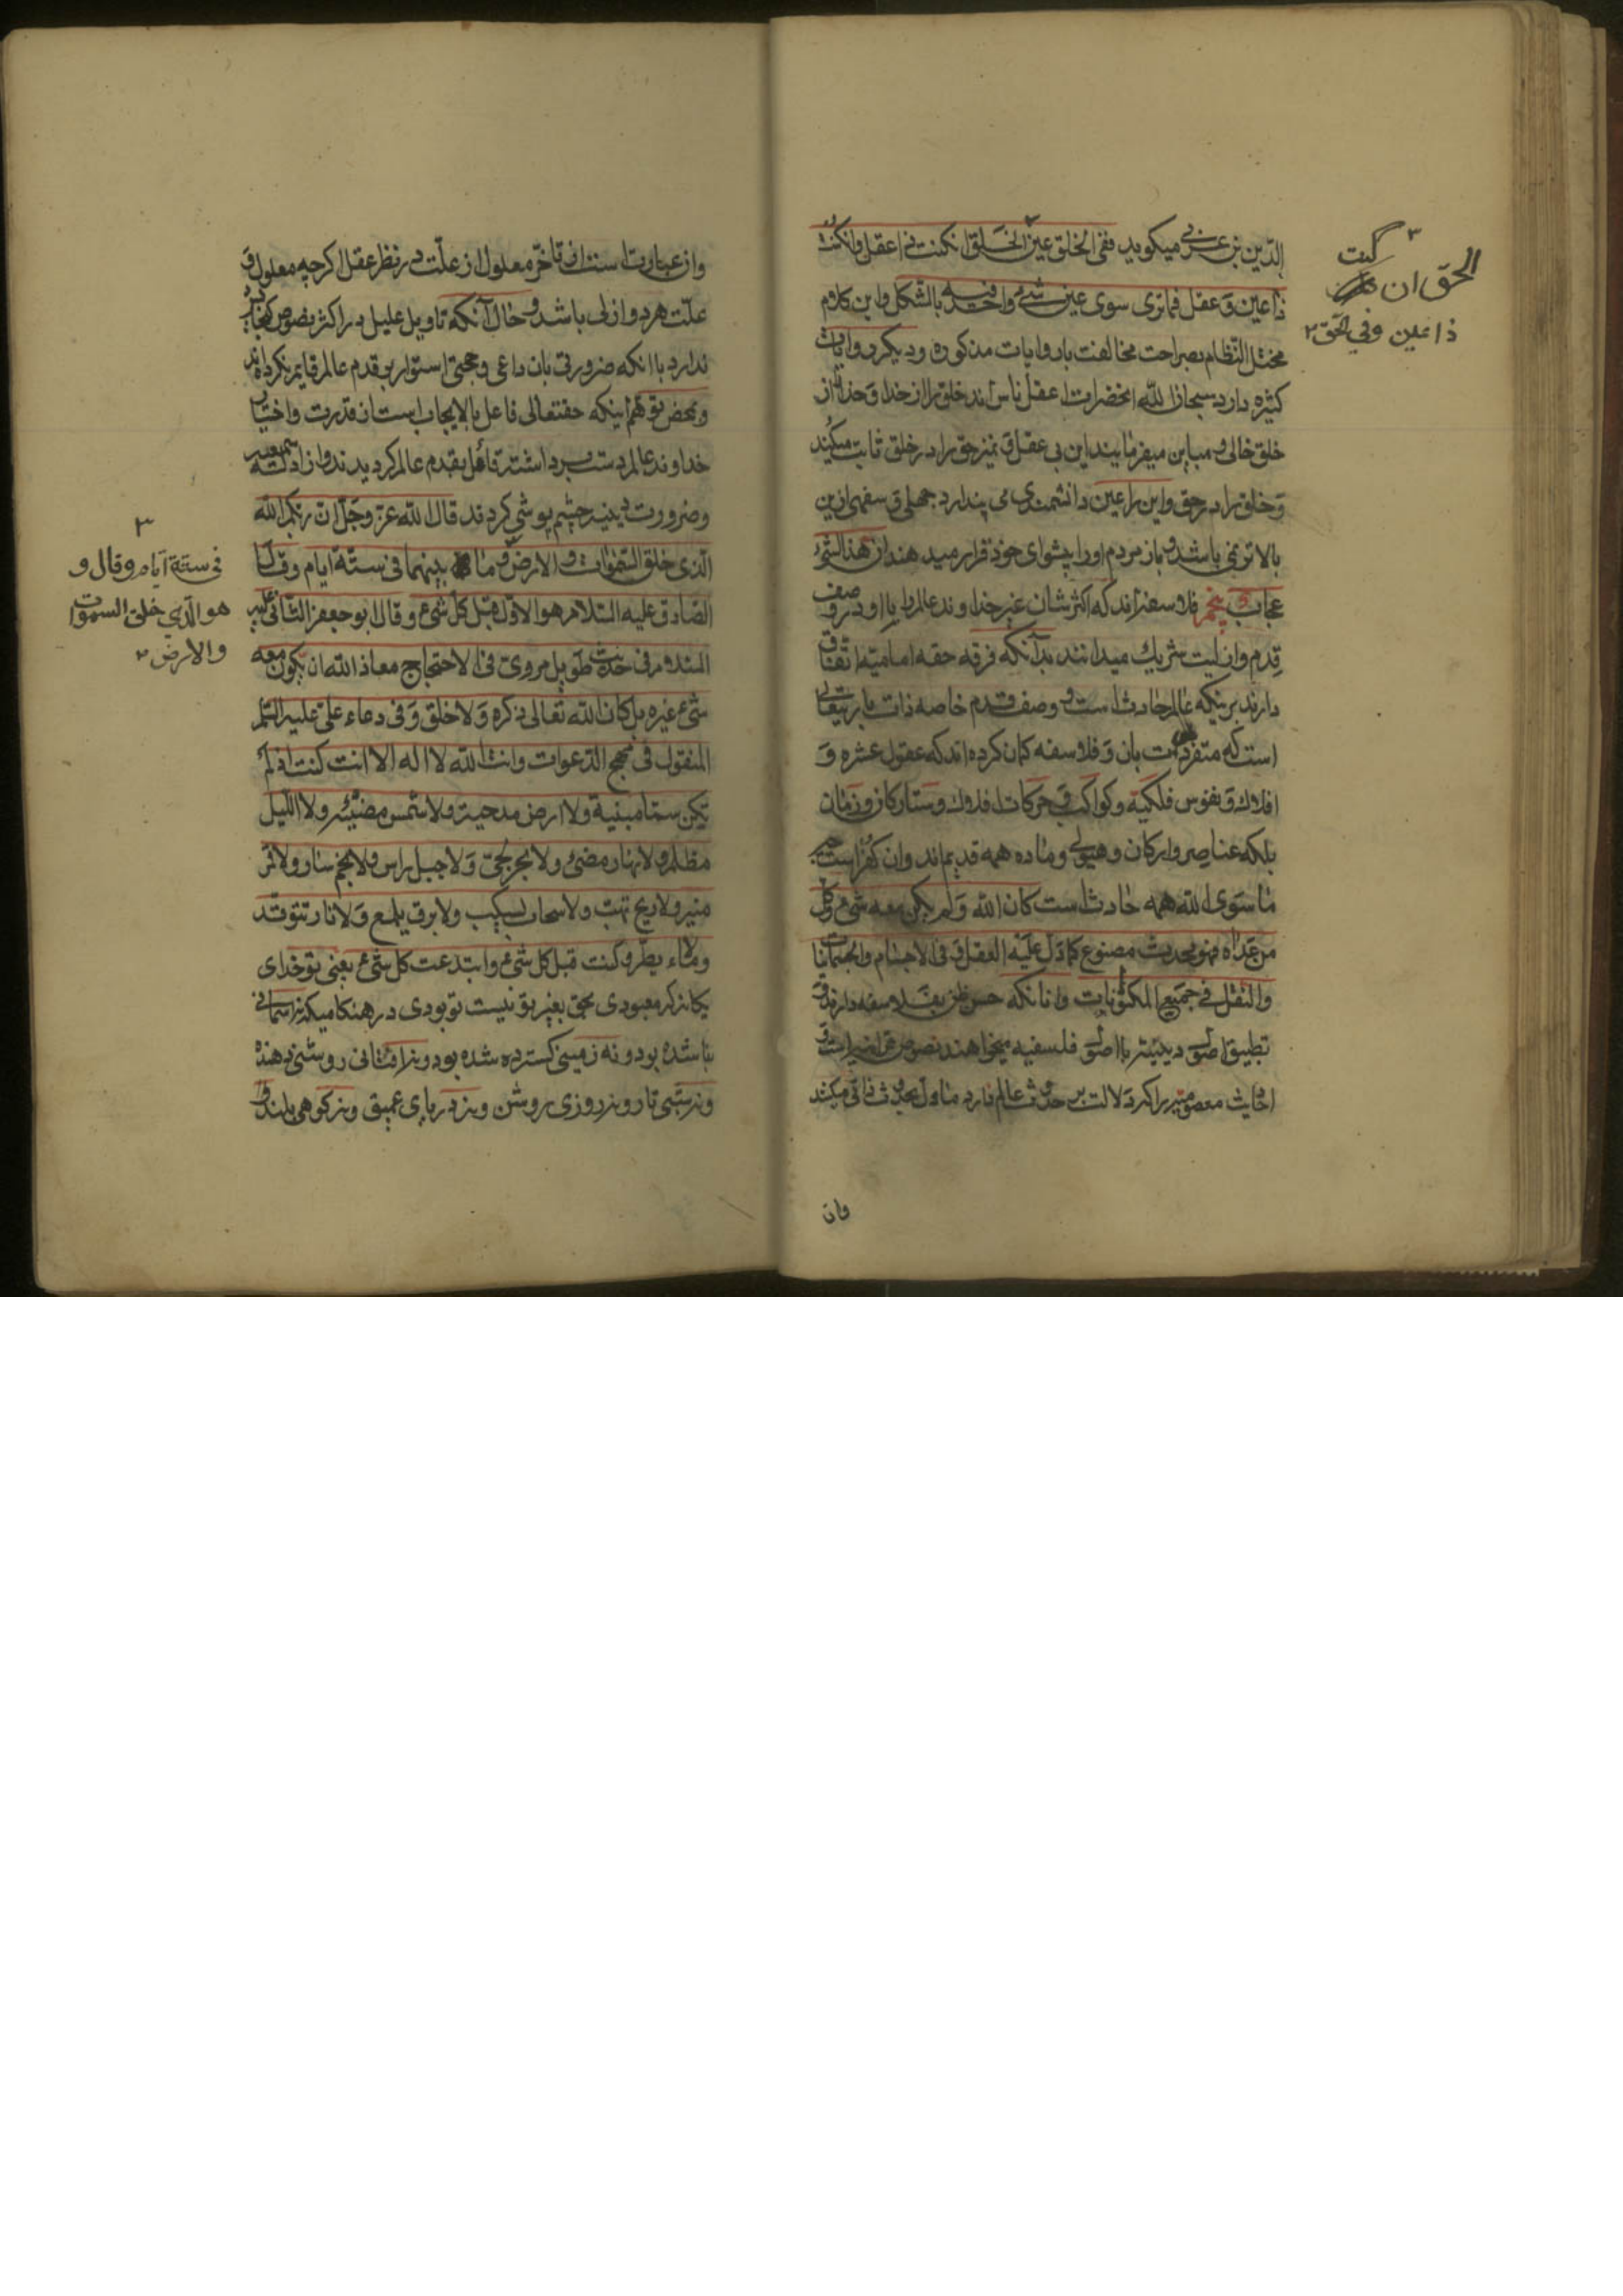 الدین بن عربی میکوید ففی الخلق عین الخلق ان کنت ذا عقل وان کنت
ذا عین وعقل فما تری سوی عین شیء واحد فیه بالشکل واین کلام
مختل النظام بصراحت مخالفت با روایات مذکوره ودیکر روایات
کثیره دارد سبحان الله انحضرات اعقل ناس اند خلق را از خدا وخدا را از
خلق خالی ومباین میفرمایند این بی عقل وتمیز حق را در خلق ثابت میکند
وخلق را در حق واین را عین دانشمندی می پندارد جهلی وسفهی ازین
بالاتر نمی باشد وباز مردم او را پیشوای خود قرار میدهند ان هذا لشیء
عجاب پنجم فلاسفه اند که اکثرشان غیر خداوند عالم را با او در وصف
قدم وازلیت شریک میدانند بدانکه فرقه حقه امامیه اتفاق
دارند برینکه عالم حادث است و وصف قدم خاصه ذات باریتعالی
است که متفرد است بان وفلاسفه کمان کرده اند که عقول عشره و
افلاک ونفوس فلکیه وکواکب وحرکات افلاک وستارکان وزمان
بلکه عناصر وارکان وهیولی وماده همه قدیم اند وان کفر است
ما سوی الله همه حادث است کان الله ولم یکن معه شیء وکل
من عداه فهو محدث مصنوع کما دل علیه العقل فی الاجسام والجسمانیات
والنقل فی جمیع المکونات وانانکه حسن ظن بفلاسفه دارند و
تطبیق اصول دینیه با اصول فلسفیه میخواهند نصوص قرانیه و
احادیث معصومیه را که دلالت بر حدوث عالم دارد ماول بحدوث ذاتی میکنند
وان
الحق ان کنت
ذا عین وفی الحق
وان عبارت است از تاخر معلول از علت در نظر عقل اکرچه معلول و
علت هر دو ازلی باشد وحال آنکه تاویل علیل در اکثر نصوص کنجایش
ندارد با انکه ضرورتی بان داعی وحجتی استوار بر قدم عالم قایم نکرده اند
ومحض توهم اینکه حقتعالی فاعل بالایجاب است از قدرت واختیار
خداوند عالم دست برداشته قائل بقدم عالم کردیدند واز ادله سمعیه
وضرورت دینیه چشم پوشی کردند قال الله عز وجل ان ربکم الله
الذی خلق السموات والارض وما بینهما فی ستة ایام وقال
الصادق علیه السلام هو الاول قبل کل شیء وقال ابو جعفر الثانی علیه
السلام فی حدیث طویل مروی فی الاحتجاج معاذ الله ان یکون معه
شیء غیره بل کان الله تعالی ذکره ولا خلق وفی دعاء علی علیه السلم
المنقول فی مهج الدعوات وانت الله لا اله الا انت کنت اذ لم
تکن سماء مبنیة ولا ارض مدحیة ولا شمس مضیئه ولا اللیل
مظلم ولا نهار مضیء ولا بحر لجی ولا جبل راس ولا نجم سار ولا قمر
منیر ولا ریح تهب ولا سحاب یسکب ولا برق یلمع ولا نار تتوقد
ولا ماء یطرد کنت قبل کل شیء وابتدعت کل شیء یعنی تو خدای
یکانه که معبودی بحق بغیر تو نیست تو بودی در هنکامیکه نه آسمانی
بنا شده بود ونه زمینی کسترده شده بود ونه افتابی روشنی دهنده
ونه شبی تار ونه روزی روشن ونه دریای عمیق ونه کوهی بلند و
فی ستة ایام وقال و
هو الذی خلق السموات
والارض